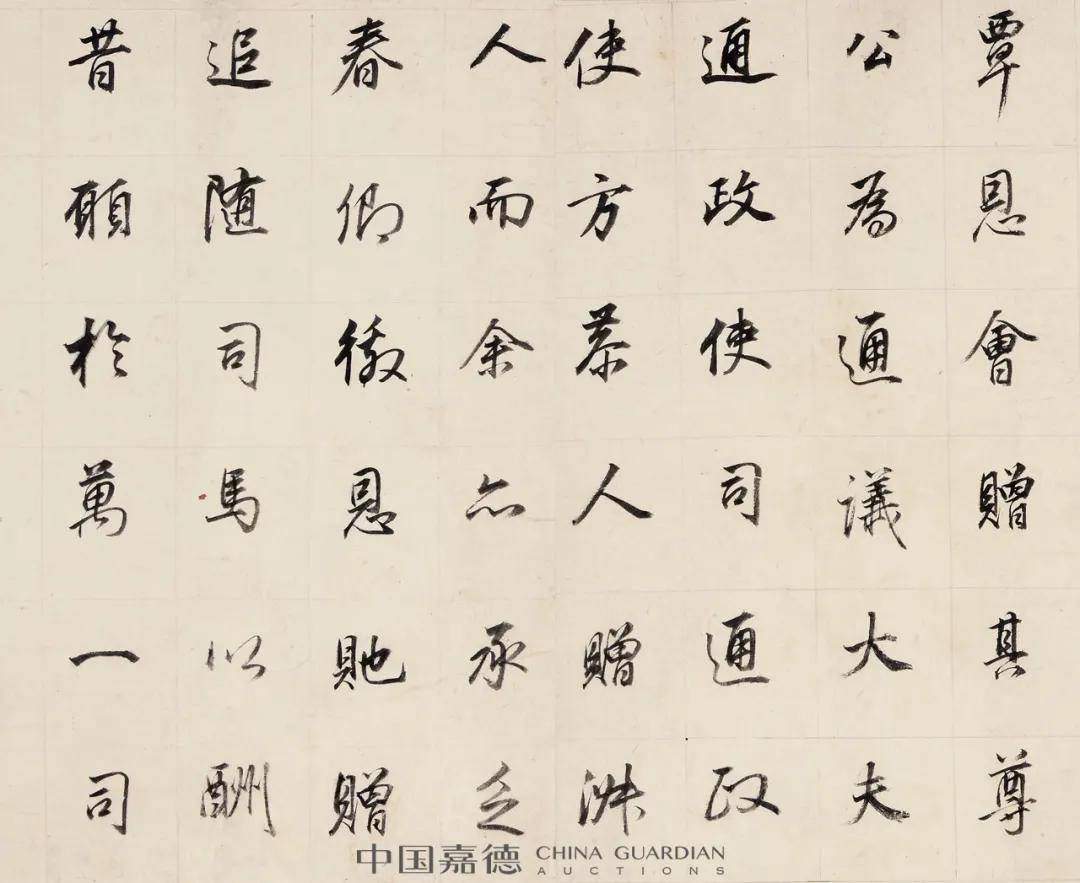 覃恩會贈其尊
公為通議大夫
通政使司通政
使方恭人贈淑
人而余亦承乏
春卿徼恩貤贈
追随司馬以酬
昔願於萬一司
中国嘉德 CHINA GUARDIAN AUCTIONS